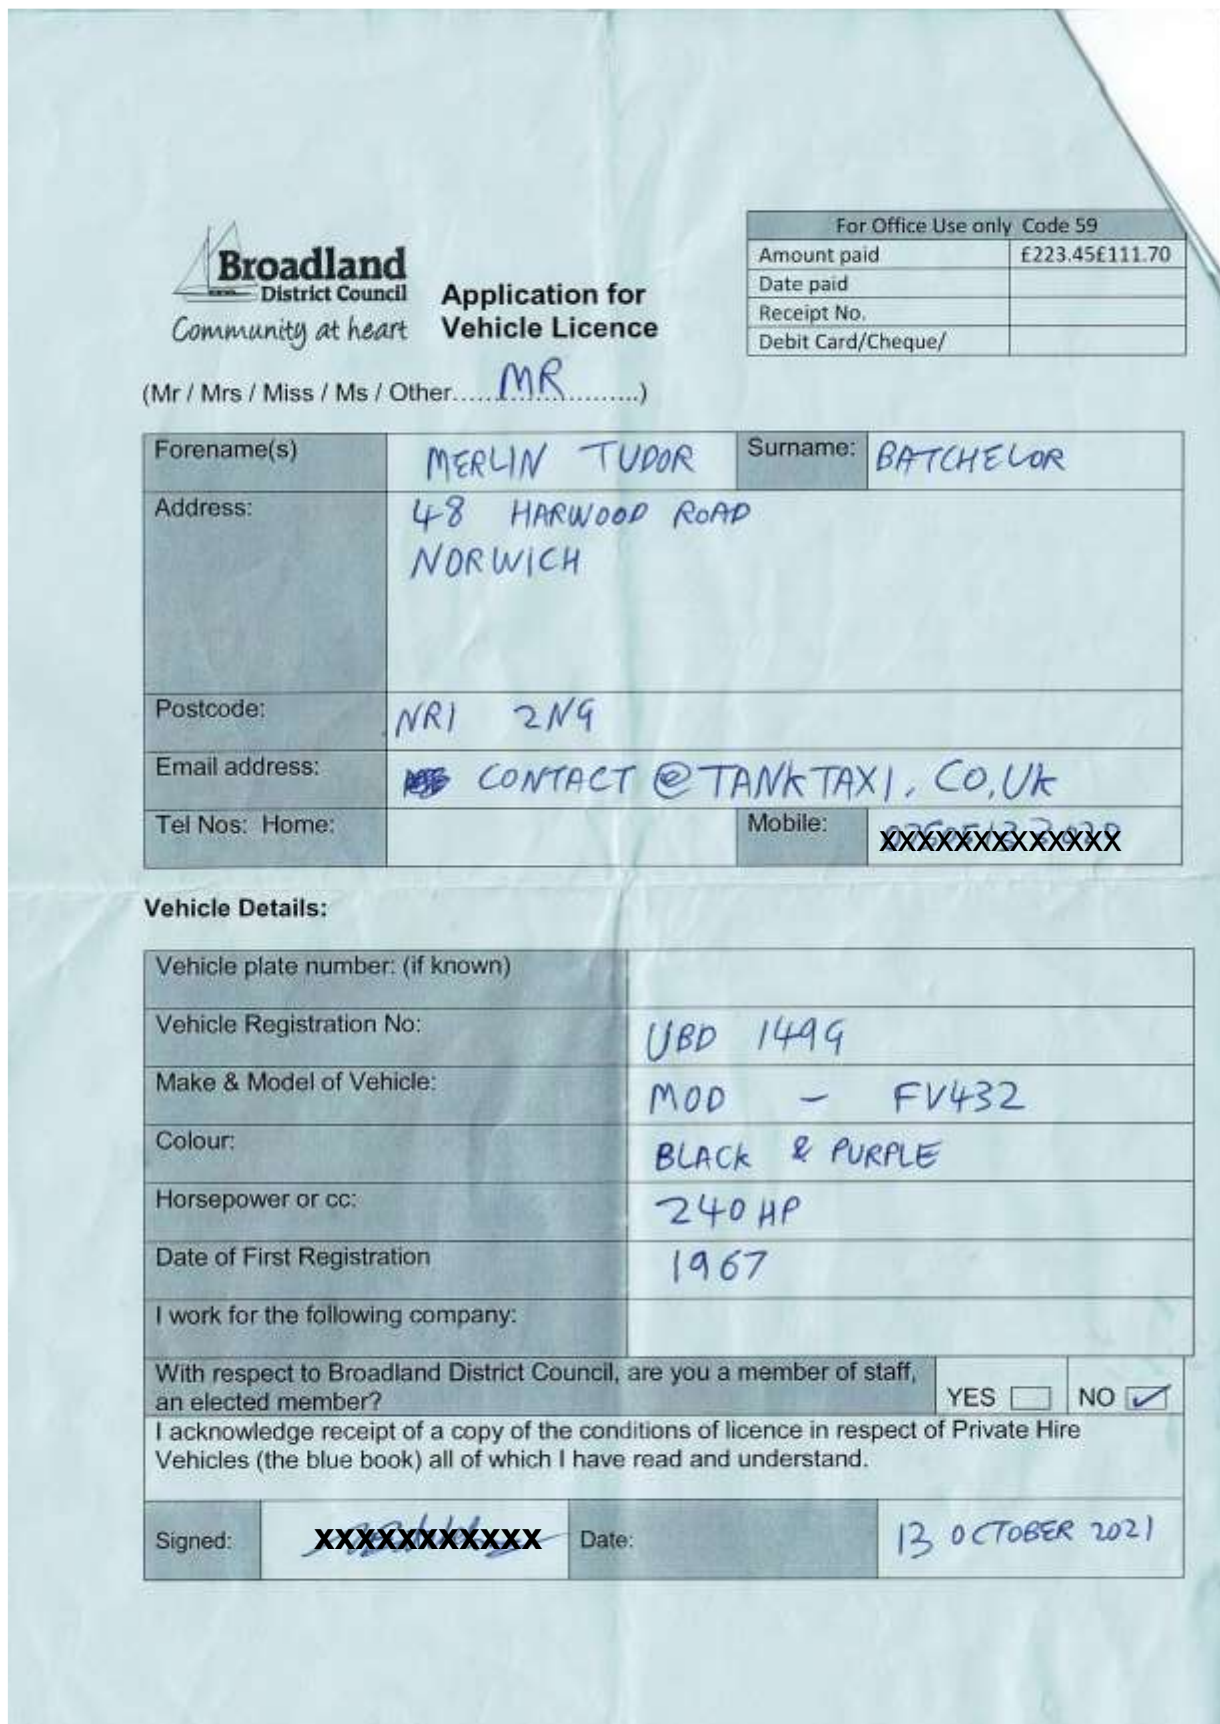 For Office Use only Code 59
Amount paid £223.45£111.70
Date paid
Receipt No.
Debit Card/Cheque/
Broadland
District Council
Community at heart
Application for
Vehicle Licence
(Mr / Mrs / Miss / Ms / Other.....MR.........)
Forename(s) MERLIN TUDOR Surname: BATCHELOR
Address: 48 HARWOOD ROAD
NORWICH
Postcode: NR1 2NG
Email address: CONTACT @ TANKTAXI. CO.UK
Tel Nos: Home: Mobile: XXXXXXXXXXXXX
Vehicle Details:
Vehicle plate number: (if known)
Vehicle Registration No: UBD 149G
Make & Model of Vehicle: MOD - FV432
Colour: BLACK & PURPLE
Horsepower or cc: 240 HP
Date of First Registration 1967
I work for the following company:
With respect to Broadland District Council, are you a member of staff,
an elected member? YES NO
I acknowledge receipt of a copy of the conditions of licence in respect of Private Hire
Vehicles (the blue book) all of which I have read and understand.
Signed: XXXXXXXXXXX Date: 13 OCTOBER 2021